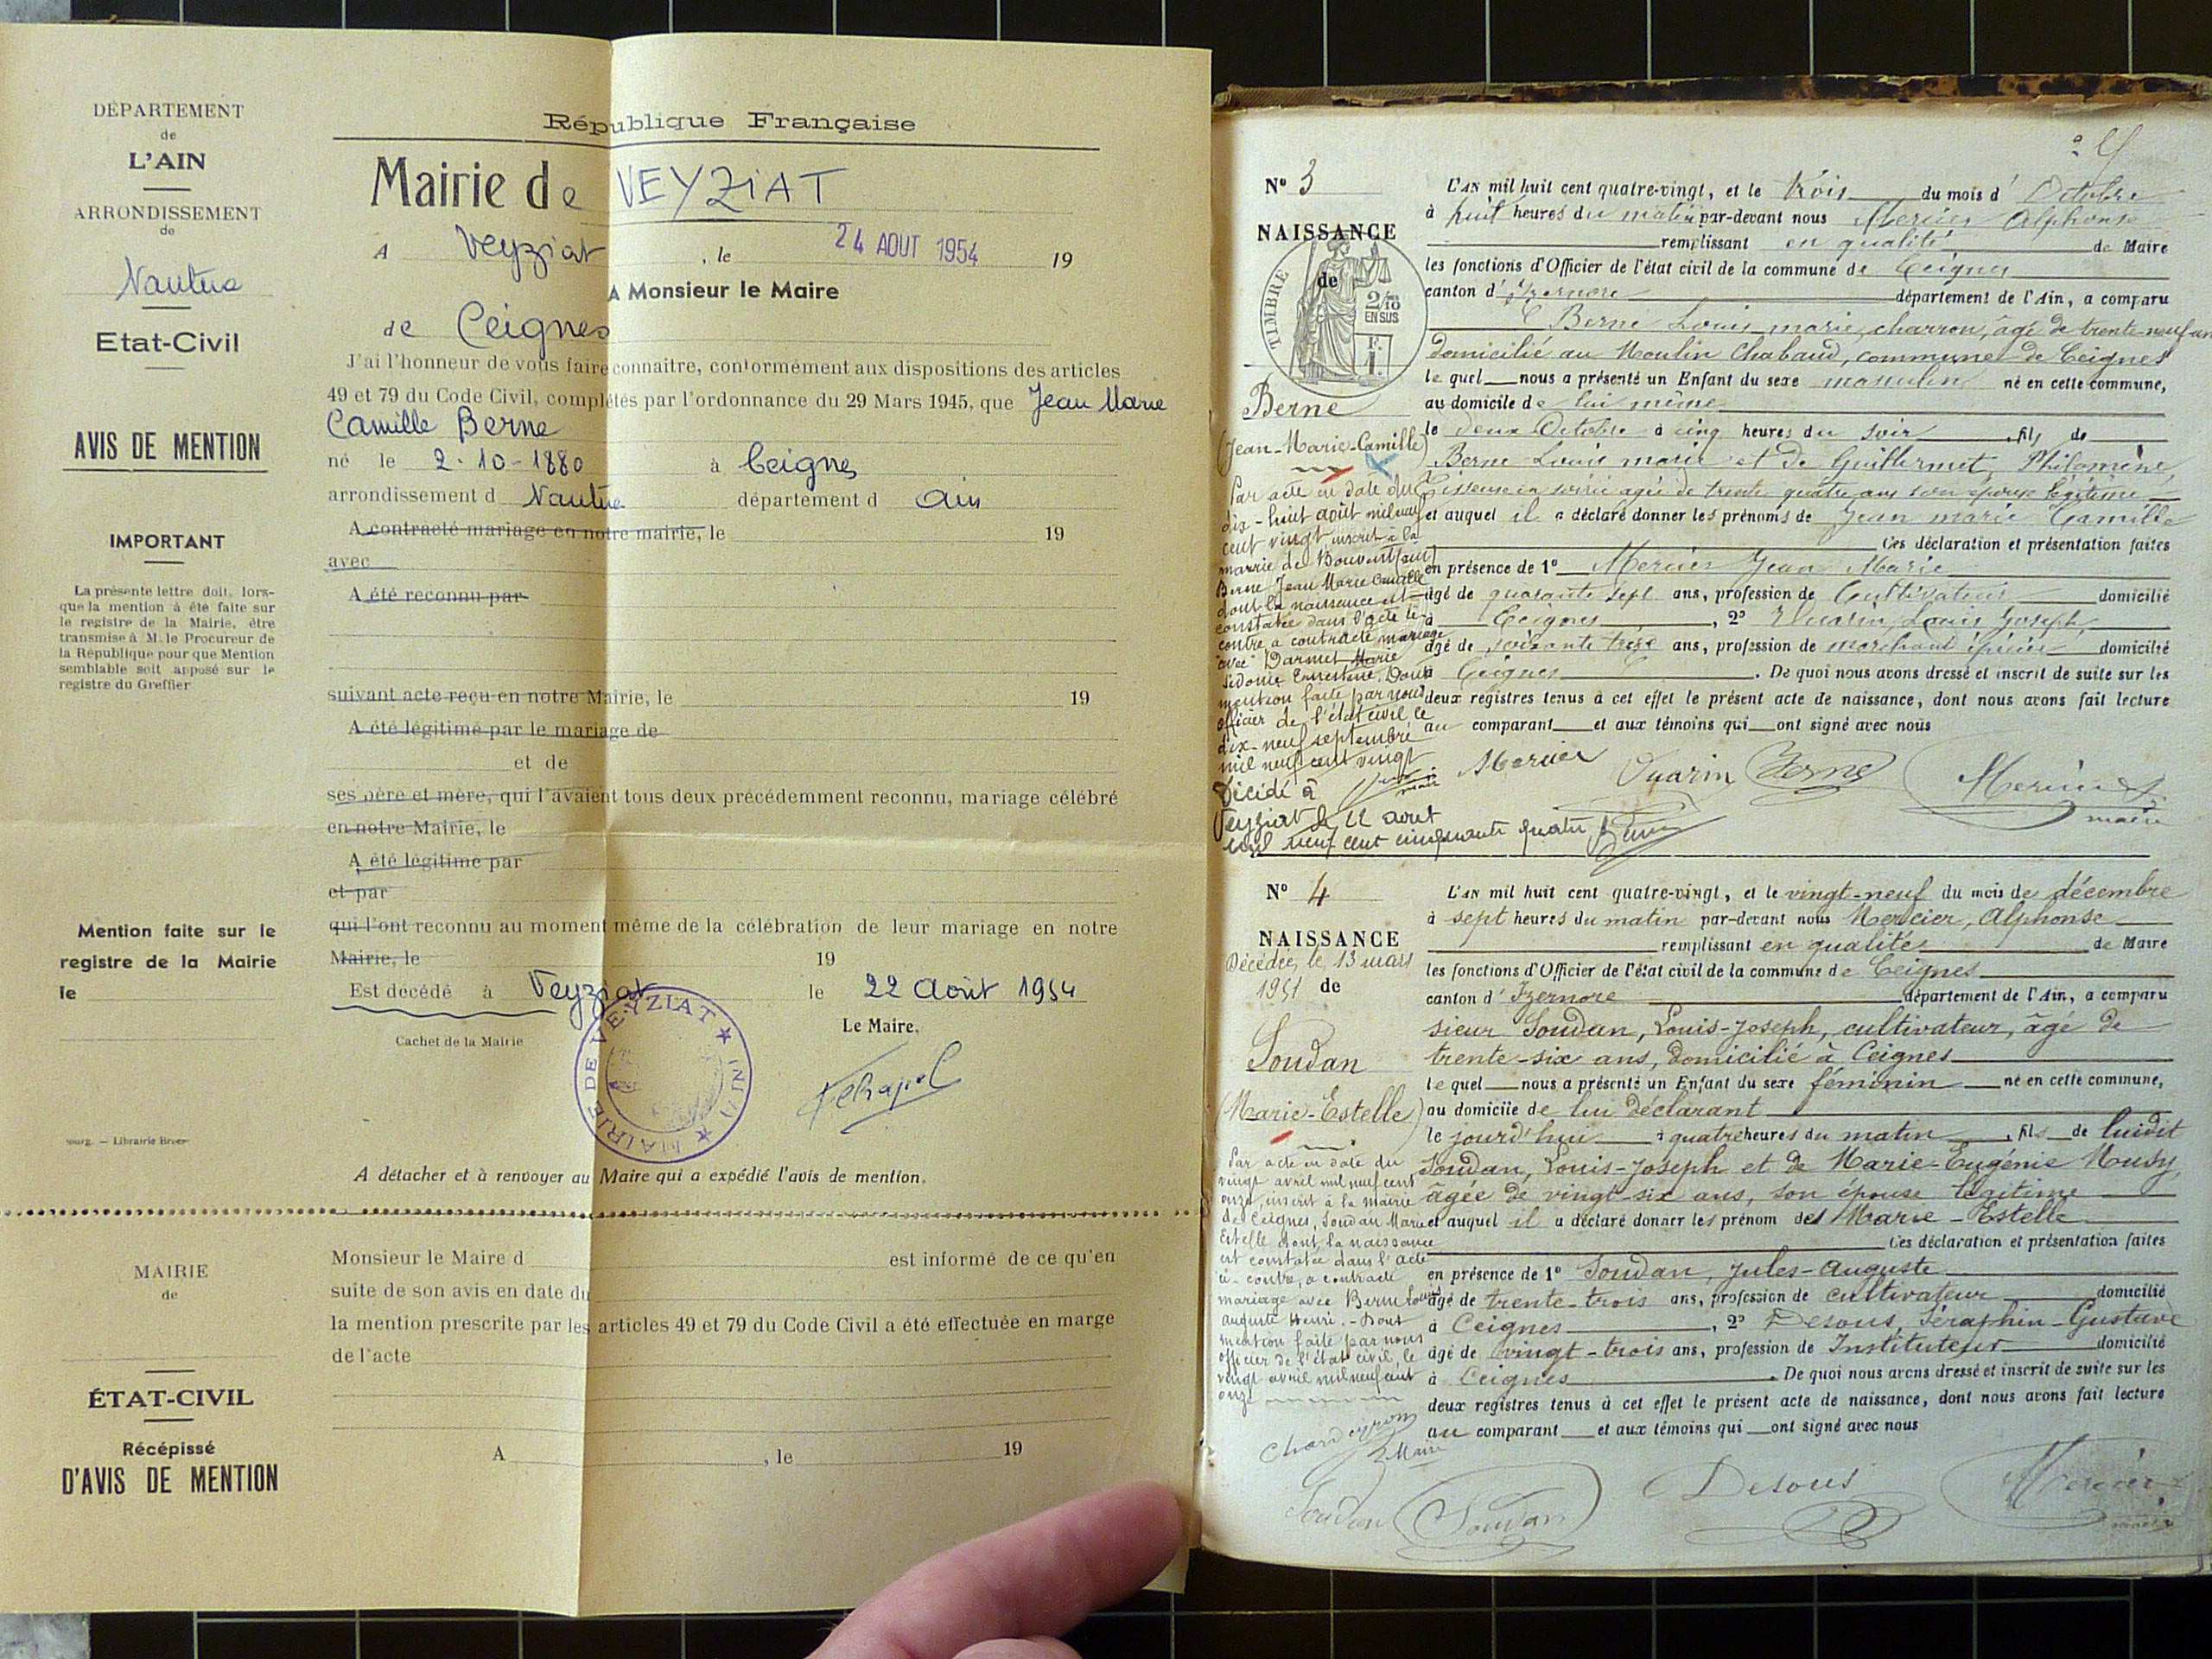 DÉPARTEMENT
de
L'AIN
ARRONDISSEMENT
de
Nantua
Etat-Civil
AVIS DE MENTION
IMPORTANT
La présente lettre doit, lors-
que la mention a été faite sur
le registre de la Mairie, être
transmise à M. le Procureur de
la République pour que Mention
semblable soit apposé sur le
registre du Greffier
Mention faite sur le
registre de la Mairie
le
Bourg. — Librairie
République Française
Mairie de VEYZIAT
A Veyziat, le 24 AOUT 1954 19
A Monsieur le Maire
de Ceignes
J'ai l'honneur de vous faire connaître, conformément aux dispositions des articles
49 et 79 du Code Civil, complétés par l'ordonnance du 29 Mars 1945, que Jean Marie
Camille Berne
né le 2-10-1880 à Ceignes
arrondissement d Nantua département d Ain
A contracté mariage en notre mairie, le 19
avec
A été reconnu par
suivant acte reçu en notre Mairie, le 19
A été légitimé par le mariage de
et de
ses père et mère, qui l'avaient tous deux précédemment reconnu, mariage célébré
en notre Mairie, le
A été légitimé par
et par
qui l'ont reconnu au moment même de la célébration de leur mariage en notre
Mairie, le 19
Est decédé à Veyziat le 22 Août 1954
Le Maire,
Cachet de la Mairie
MAIRIE DE VEYZIAT
A détacher et à renvoyer au Maire qui a expédié l'avis de mention.
MAIRIE
de
ÉTAT-CIVIL
Récépissé
D'AVIS DE MENTION
Monsieur le Maire d est informé de ce qu'en
suite de son avis en date du
la mention prescrite par les articles 49 et 79 du Code Civil a été effectuée en marge
de l'acte
A , le 19
N° 3
NAISSANCE
de
TIMBRE
2/10
EN SUS
Berne
(Jean-Marie-Camille)
Par acte en date du
dix-huit août mil neuf
cent vingt inscrit à la
mairie de Bouvent
Berne Jean Marie Camille
dont la naissance est
constatée dans l'acte ci-
contre a contracté mariage
avec Darmet Marie
Sidonie Ernestine. Dont
mention faite par nous
officier de l'état civil le
dix-neuf septembre
mil neuf cent vingt
Décidé à
Veyziat le 22 août
mil neuf cent cinquante quatre
L'AN mil huit cent quatre-vingt, et le trois du mois d' Octobre
à huit heures du matin par-devant nous Mercier Alphonse
remplissant en qualité de Maire
les fonctions d'Officier de l'état civil de la commune de Ceignes
canton d' Izernore département de l'Ain, a comparu
Berne Louis marie, charron, âgé de trente-neuf an
domicilié au Moulin Chabaud, commune de Ceignes
le quel nous a présenté un Enfant du sexe masculin né en cette commune,
au domicile de lui même
le deux Octobre à cinq heures du soir, fils de
Berne Louis marie et de Guillermet, Philomène
Tisseuse en soirie agée de trente quatre ans son épouse légitime
et auquel il a déclaré donner les prénoms de Jean marie Camille
Ces déclaration et présentation faites
en présence de 1° Mercier Jean Marie
âgé de quarante sept ans, profession de Cultivateur domicilié
à Ceignes, 2° Louis Joseph
âgé de soixante treize ans, profession de marchand épicier domicilié
à Ceignes. De quoi nous avons dressé et inscrit de suite sur les
deux registres tenus à cet effet le présent acte de naissance, dont nous avons fait lecture
au comparant et aux témoins qui ont signé avec nous
Mercier Berne Mercier
maire
N° 4
NAISSANCE
Décédée le 13 mars
1951 de
Soudan
(Marie-Estelle)
Par acte en date du
vingt avril mil neuf cent
onze, inscrit à la mairie
de Ceignes, Soudan Marie
Estelle dont la naissance
est constatée dans l'acte
ci-contre, a contracté
mariage avec Berne Louis
Auguste Henri. - Dont
mention faite par nous
officier de l'état civil, le
vingt avril mil neuf cent
onze
L'AN mil huit cent quatre-vingt, et le vingt-neuf du mois de décembre
à sept heures du matin par-devant nous Mercier, Alphonse
remplissant en qualité de Maire
les fonctions d'Officier de l'état civil de la commune de Ceignes
canton d' Izernore département de l'Ain, a comparu
sieur Soudan, Louis-Joseph, cultivateur, âgé de
trente-six ans, domicilié à Ceignes
le quel nous a présenté un Enfant du sexe féminin né en cette commune,
au domicile de lui déclarant
le jourd'hui à quatre heures du matin, fils de luidit
Soudan, Louis-Joseph et de Marie-Eugénie Musy,
âgée de vingt-six ans, son épouse légitime
et auquel il a déclaré donner les prénom des Marie-Estelle
Ces déclaration et présentation faites
en présence de 1° Soudan, Jules-Auguste
âgé de trente-trois ans, profession de cultivateur domicilié
à Ceignes, 2° Desous, Séraphin-Gustave
âgé de vingt-trois ans, profession de Instituteur domicilié
à Ceignes. De quoi nous avons dressé et inscrit de suite sur les
deux registres tenus à cet effet le présent acte de naissance, dont nous avons fait lecture
au comparant et aux témoins qui ont signé avec nous
Maire
Soudan Soudan Desous Mercier